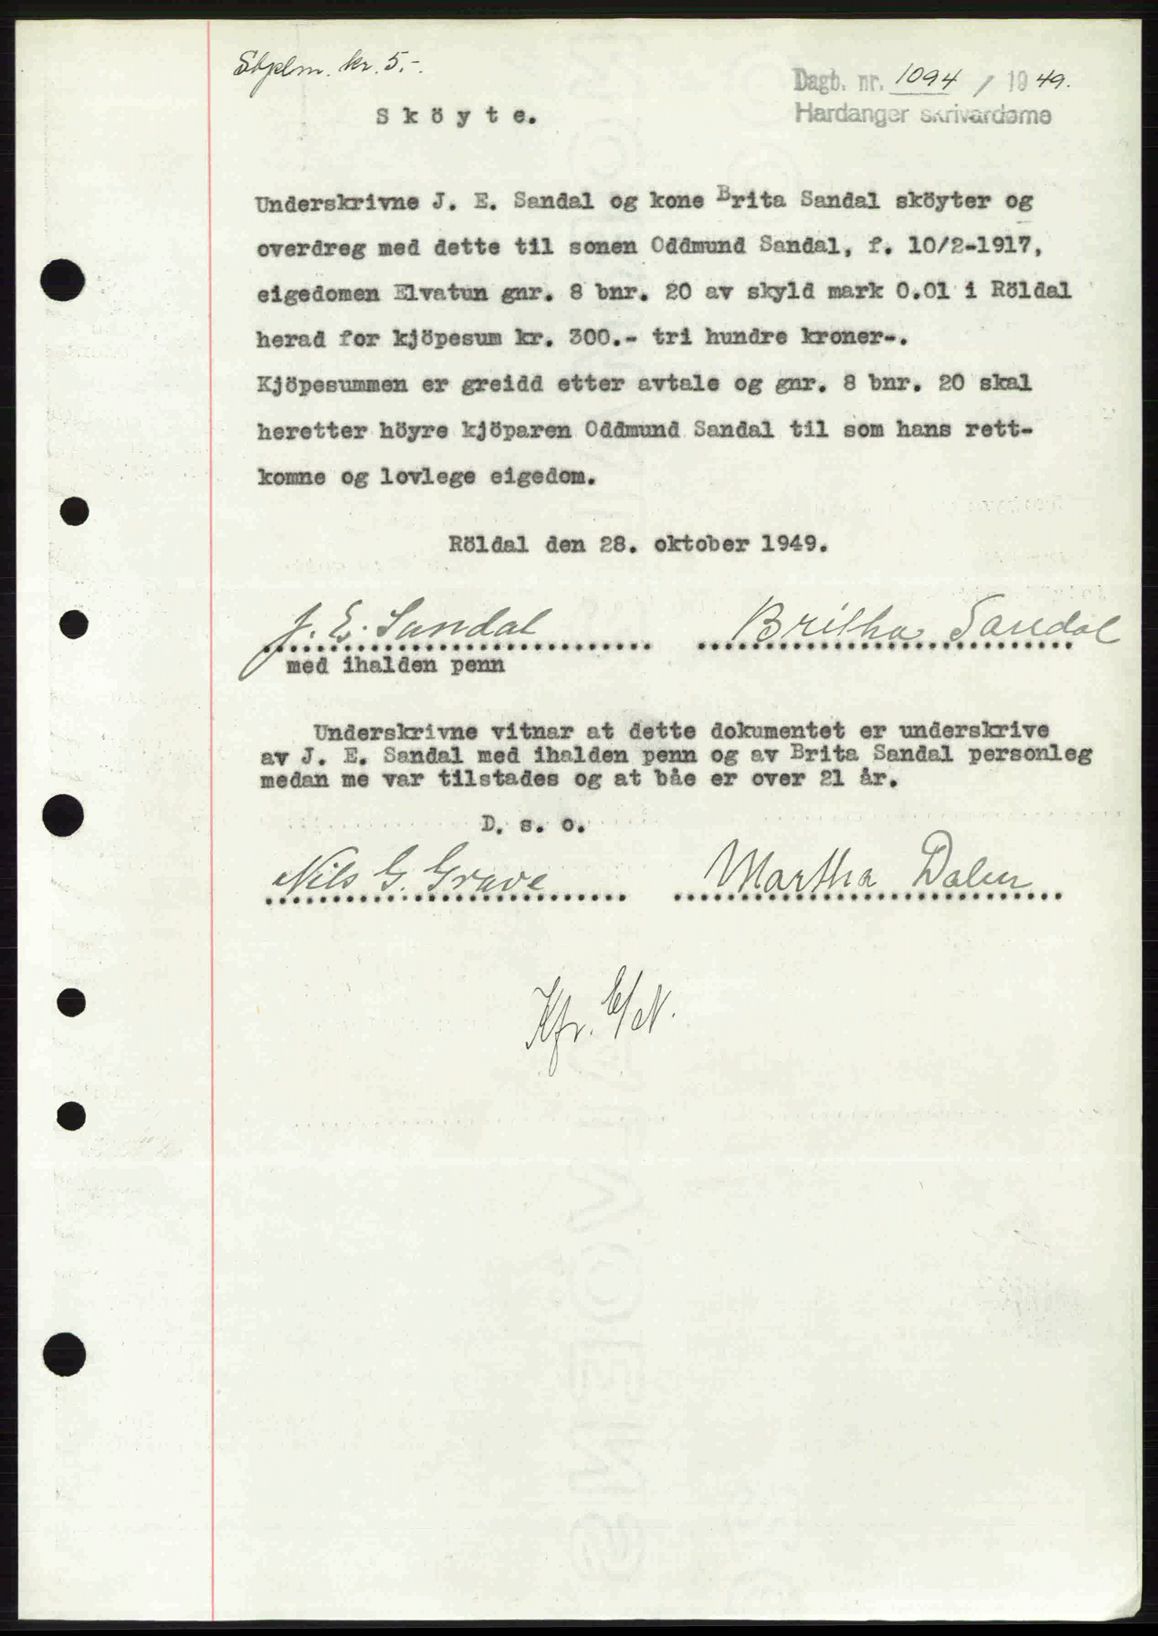 Stplm. kr. 5.-.
Dagb. nr. 1094 / 1949.
Hardanger skrivardøme
Sköyte.
Underskrivne J. E. Sandal og kone Brita Sandal sköyter og
overdreg med dette til sonen Oddmund Sandal, f. 10/2-1917,
eigedomen Elvatun gnr. 8 bnr. 20 av skyld mark 0.01 i Röldal
herad for kjöpesum kr. 300.- tri hundre kroner-.
Kjöpesummen er greidd etter avtale og gnr. 8 bnr. 20 skal
heretter höyre kjöparen Oddmund Sandal til som hans rett-
komne og lovlege eigedom.
Röldal den 28. oktober 1949.
J. E. Sandal Britha Sandal
med ihalden penn
Underskrivne vitnar at dette dokumentet er underskrive
av J. E. Sandal med ihalden penn og av Brita Sandal personleg
medan me var tilstades og at båe er over 21 år.
D. s. o.
Nils G. Grave Martha Dalen
Kfr.